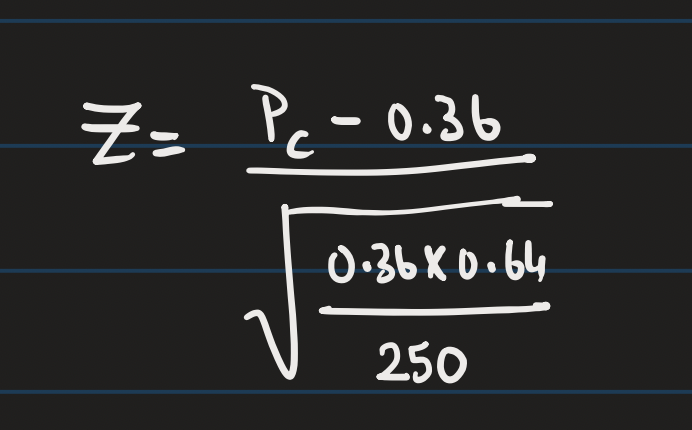 Z = P_c - 0.36
0.36 x 0.64
250